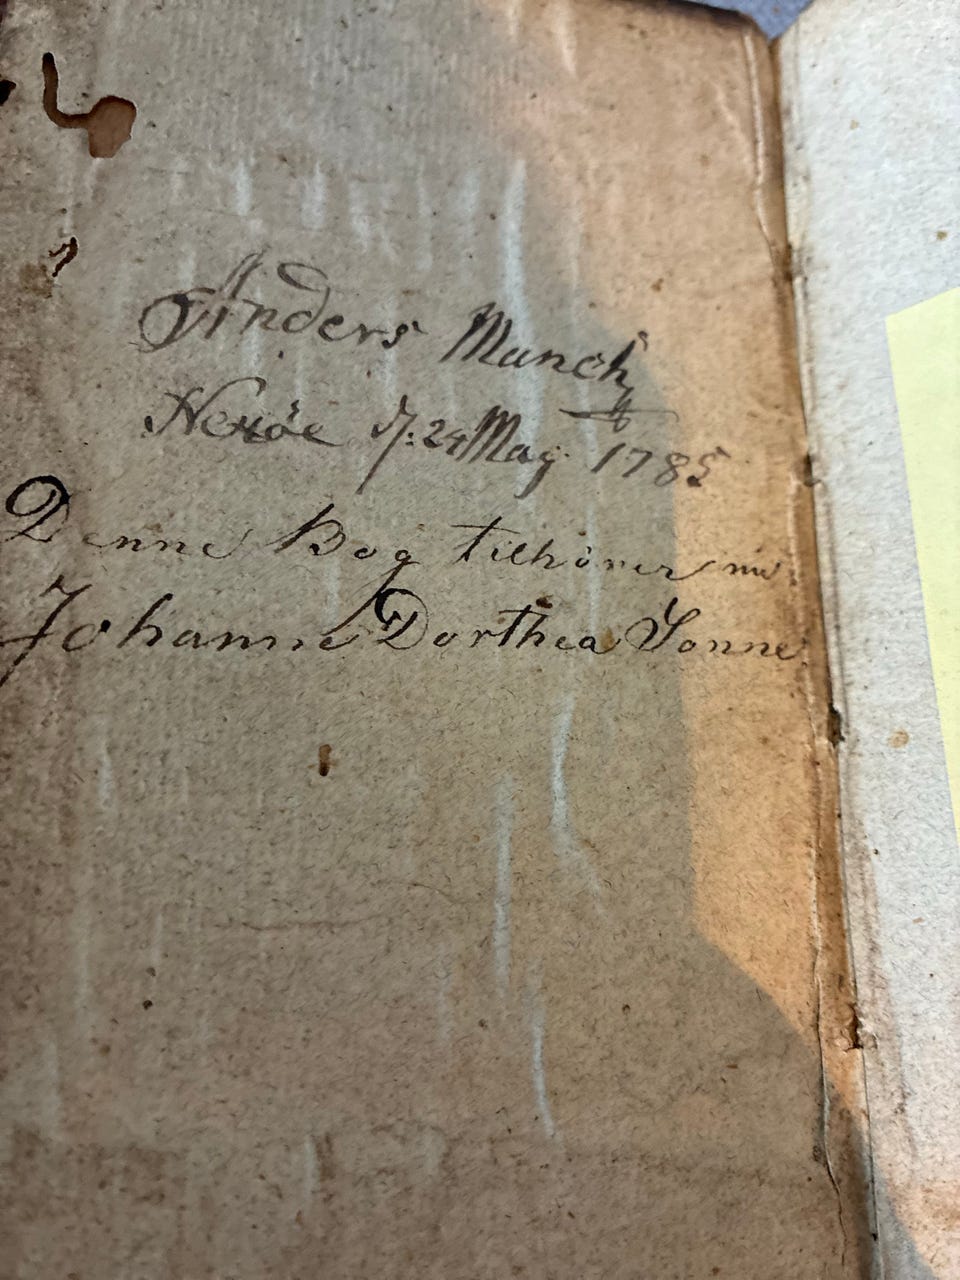 Anders Munch
Nexöe d: 24 May 1785
Denne Bog tilhörer mi
Johanne Dorthea Sonne